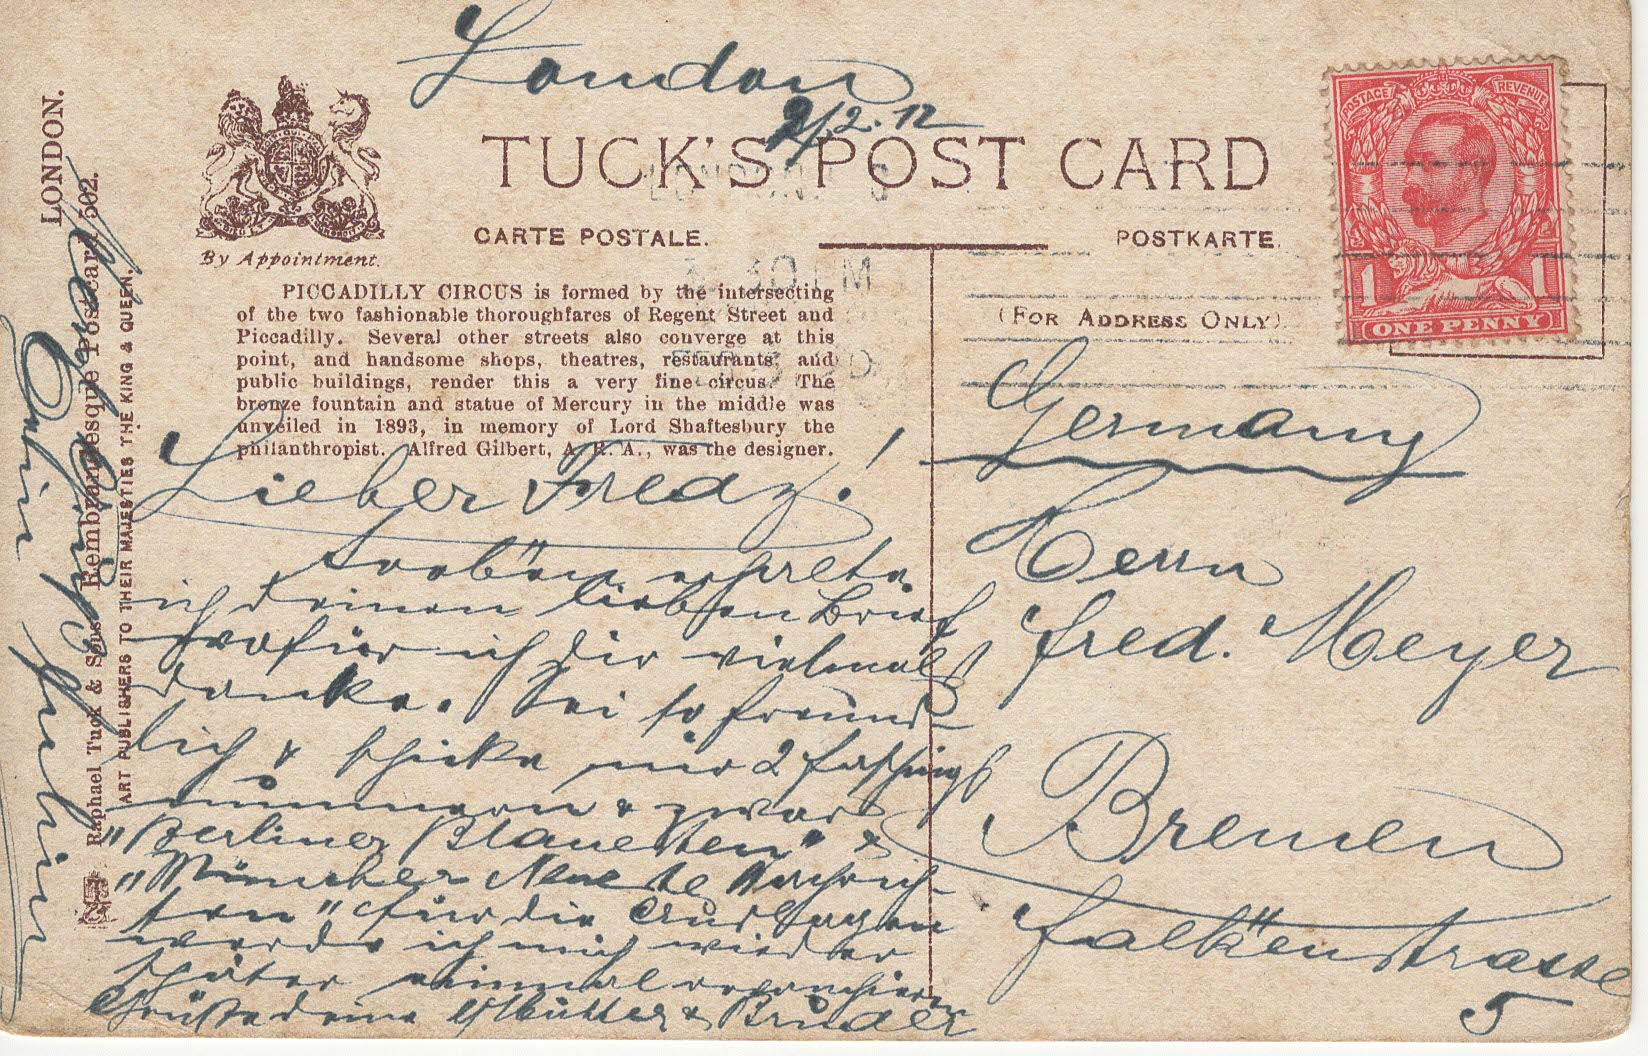 London
2/2.12
TUCK'S POST CARD
CARTE POSTALE.
POSTKARTE.
By Appointment.
(FOR ADDRESS ONLY).
POSTAGE REVENUE
1 1
ONE PENNY
PICCADILLY CIRCUS is formed by the intersecting
of the two fashionable thoroughfares of Regent Street and
Piccadilly. Several other streets also converge at this
point, and handsome shops, theatres, restaurants, and
public buildings, render this a very fine circus. The
bronze fountain and statue of Mercury in the middle was
unveiled in 1893, in memory of Lord Shaftesbury the
philanthropist. Alfred Gilbert, A.R.A., was the designer.
Lieber Fredy!
Soeben erhielte
ich deinen lieben Brief
wofür ich dir vielmals
danke. Sei so freund-
lich & schicke mir 2 Faschings
nummern & zwar
"Berliner &
"Münchner Neueste Nachrich-
ten" für die Auslagen
werde ich mich wieder
später einmal revanchieren
Grüße deine Mutter & Brüder
Germany
Herrn
Fred. Meyer
Bremen
Falkenstrasse
5
LONDON.
Raphael Tuck & Sons' Rembrandtesque Postcard 502.
ART PUBLISHERS TO THEIR MAJESTIES THE KING & QUEEN.